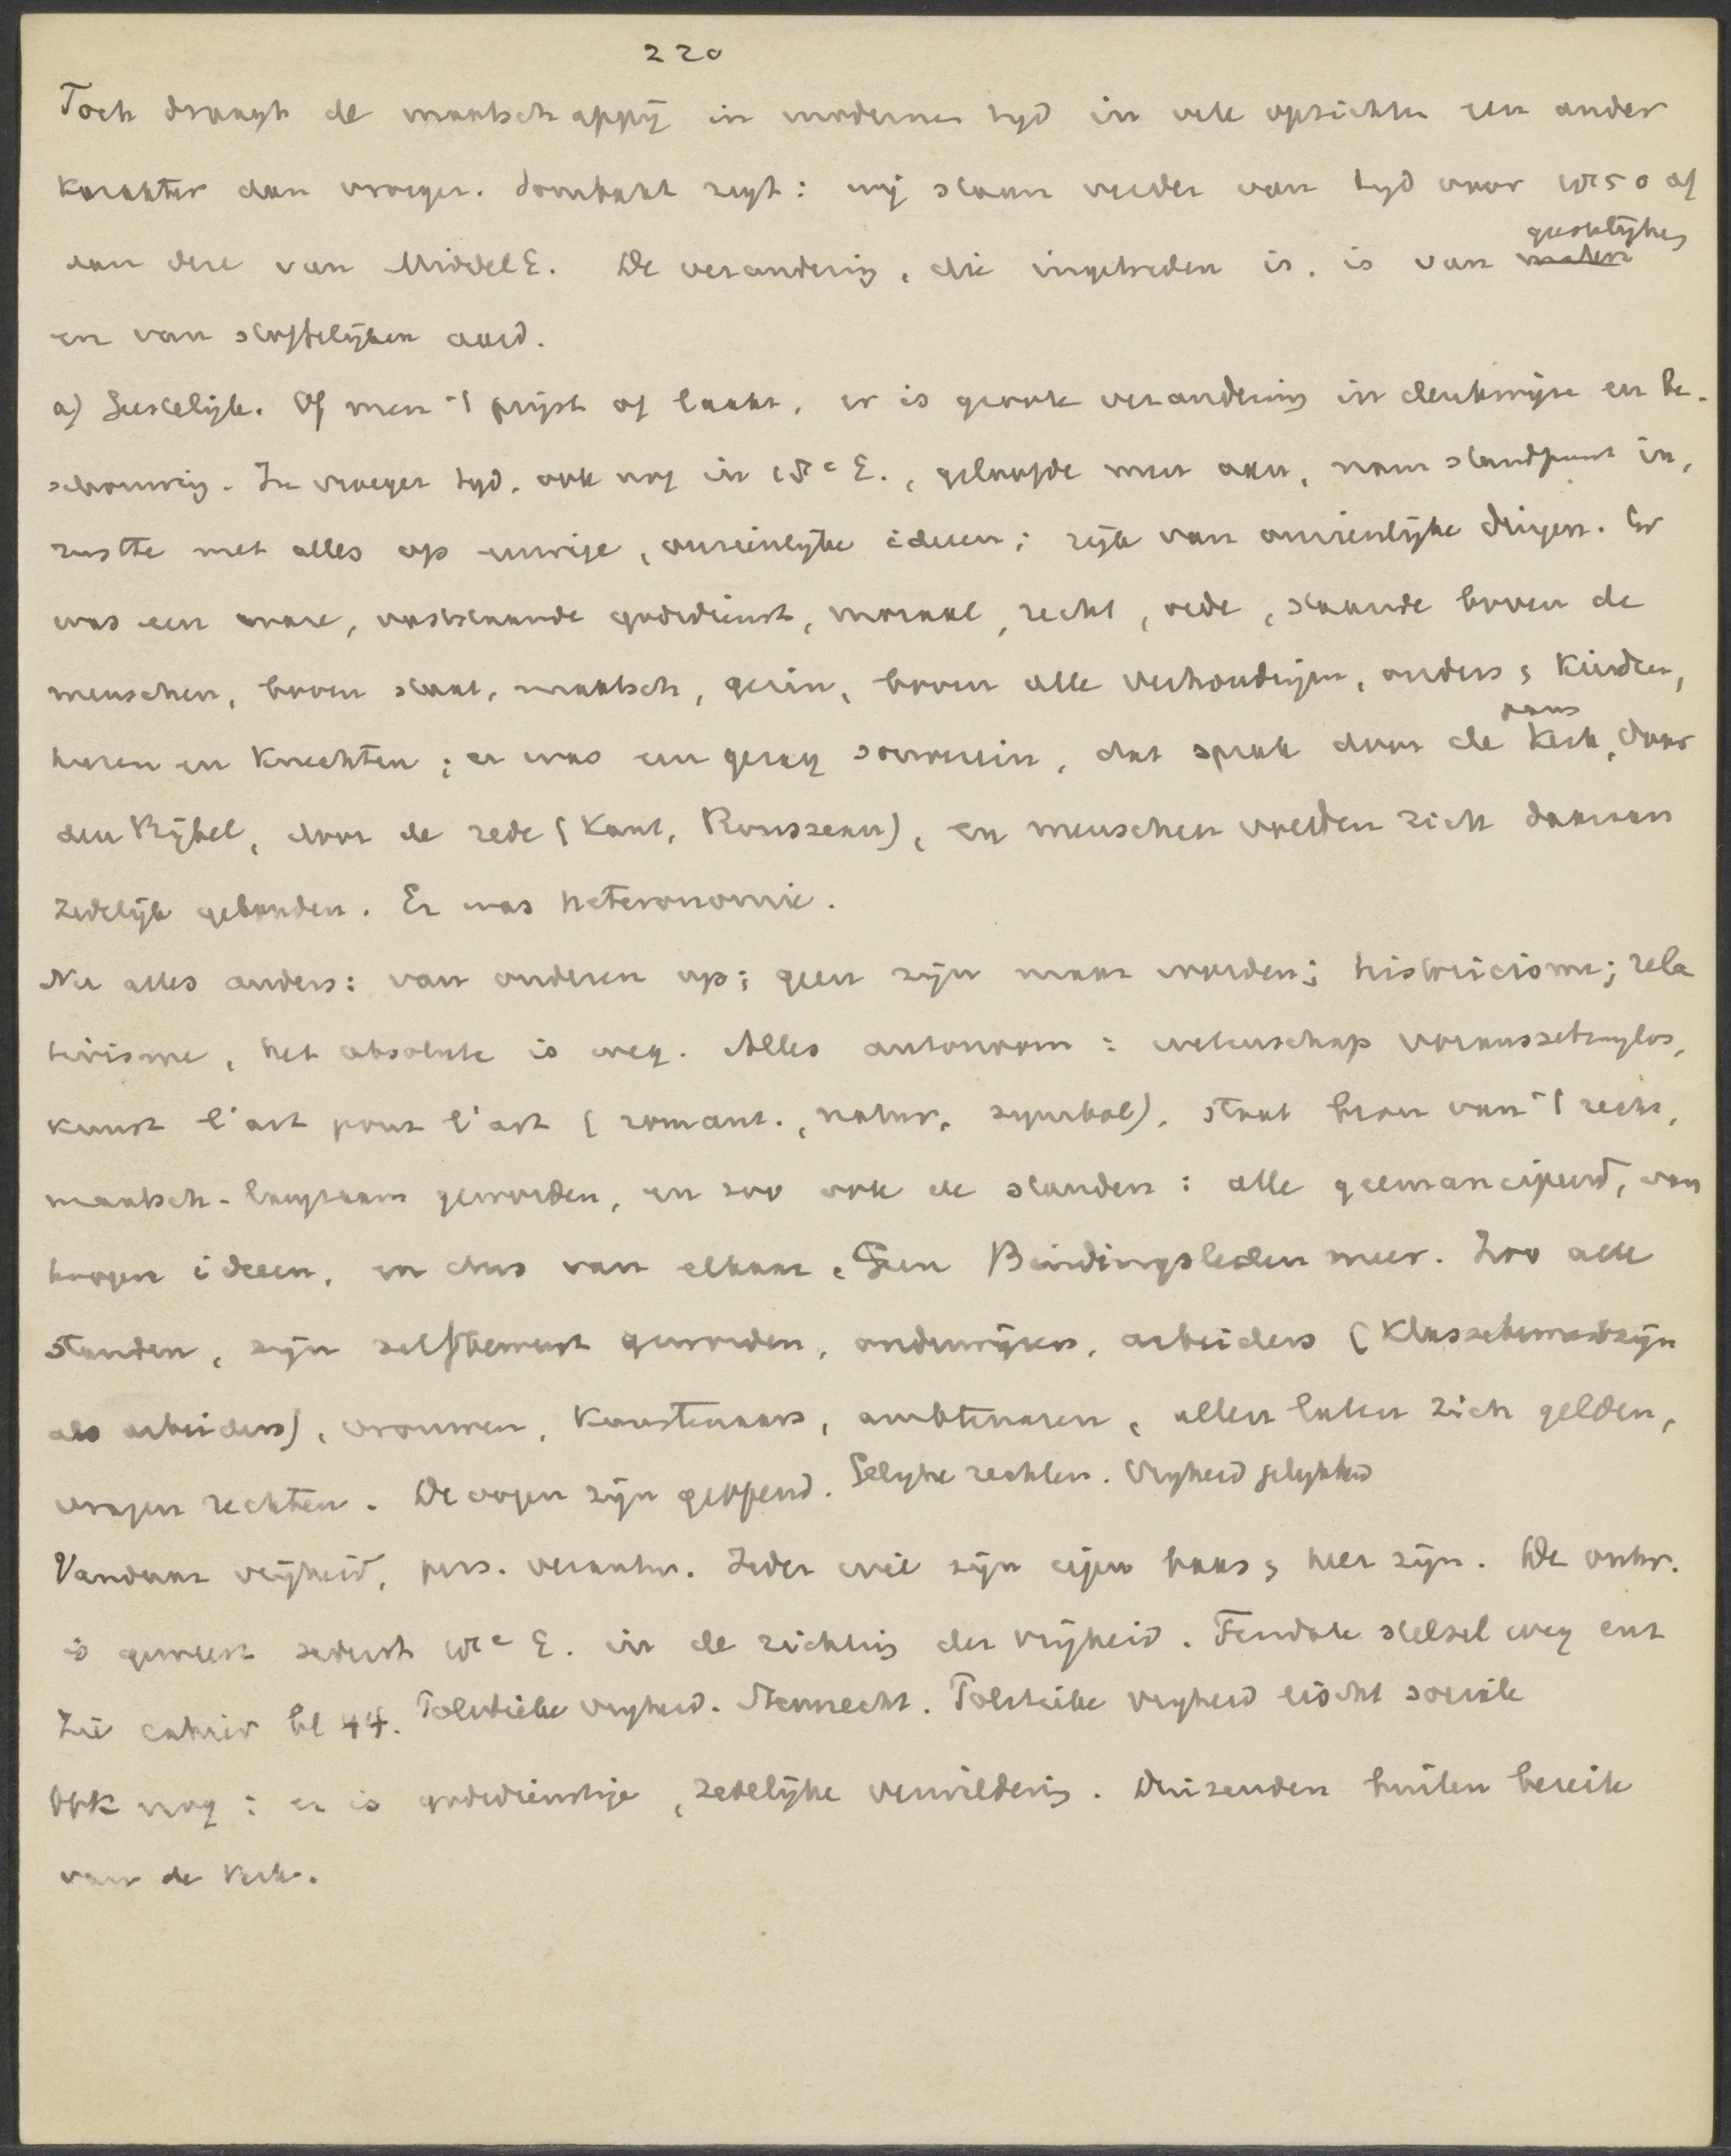 220
Toch draagt de maatschappij in moderne tijd in vele opzichten een ander
karakter dan vroeger. Sombart zegt: wij staan verder van tijd voor 1850 af
dan deze van Middel E. De verandering, die ingetreden is, is van geestelijken
en van stoffelijken aard.
a) Geestelijk. Of men 't prijst of laakt, er is groote verandering in denkwijze en be-
schouwing. In vroeger tijd, ook nog in 18e E., geloofde men aan, nam standpunt in,
rustte met alles op eeuwige, onzienlijke ideeen; rijk van onzienlijke dingen. Er
was een ware, vaststaande godsdienst, moraal, recht, rede, staande boven de
menschen, boven staat, maatsch, gezin, boven alle verhoudingen, ouders & kinderen,
heeren en knechten; er was een gezag souverein, dat sprak door de paus Kerk, door
den Bijbel, door de rede (Kant, Rousseau), en menschen voelden zich daaraan
zedelijk gebonden. Er was heteronomie.
Nu alles anders: van onderen op; geen zijn maar worden; historicisme; rela
tivisme, het absolute is weg. Alles autonoom: wetenschap voraussetzungslos,
kunst l'art pour l'art (romant., natur, symbol), staat bron van 't recht,
maatsch. langzaam geworden, en zoo ook de standen: alle geemancipeerd, van
hoogere ideeen, en dus van elkaar. Geen Bindingsleden meer. Zoo alle
standen, zijn zelfbewust geworden, onderwijzers, arbeiders (klassebewustzijn
als arbeiders), vrouwen, kunstenaars, ambtenaren, allen laten zich gelden,
vragen rechten. De oogen zijn geopend. Gelijke rechten. Vrijheid gelijkheid
Vandaar vrijheid, pers. verantw. Ieder wil zijn eigen baas & heer zijn. De ontw.
is geweest sedert 18e E. in de richting der vrijheid. Feudale stelsel weg enz
Zie cahier bl 44. Politieke vrijheid. Stemrecht. Politieke vrijheid eischt sociale
Ook nog: er is godsdienstige, zedelijke verwildering. Duizenden buiten bereik
van de Kerk.